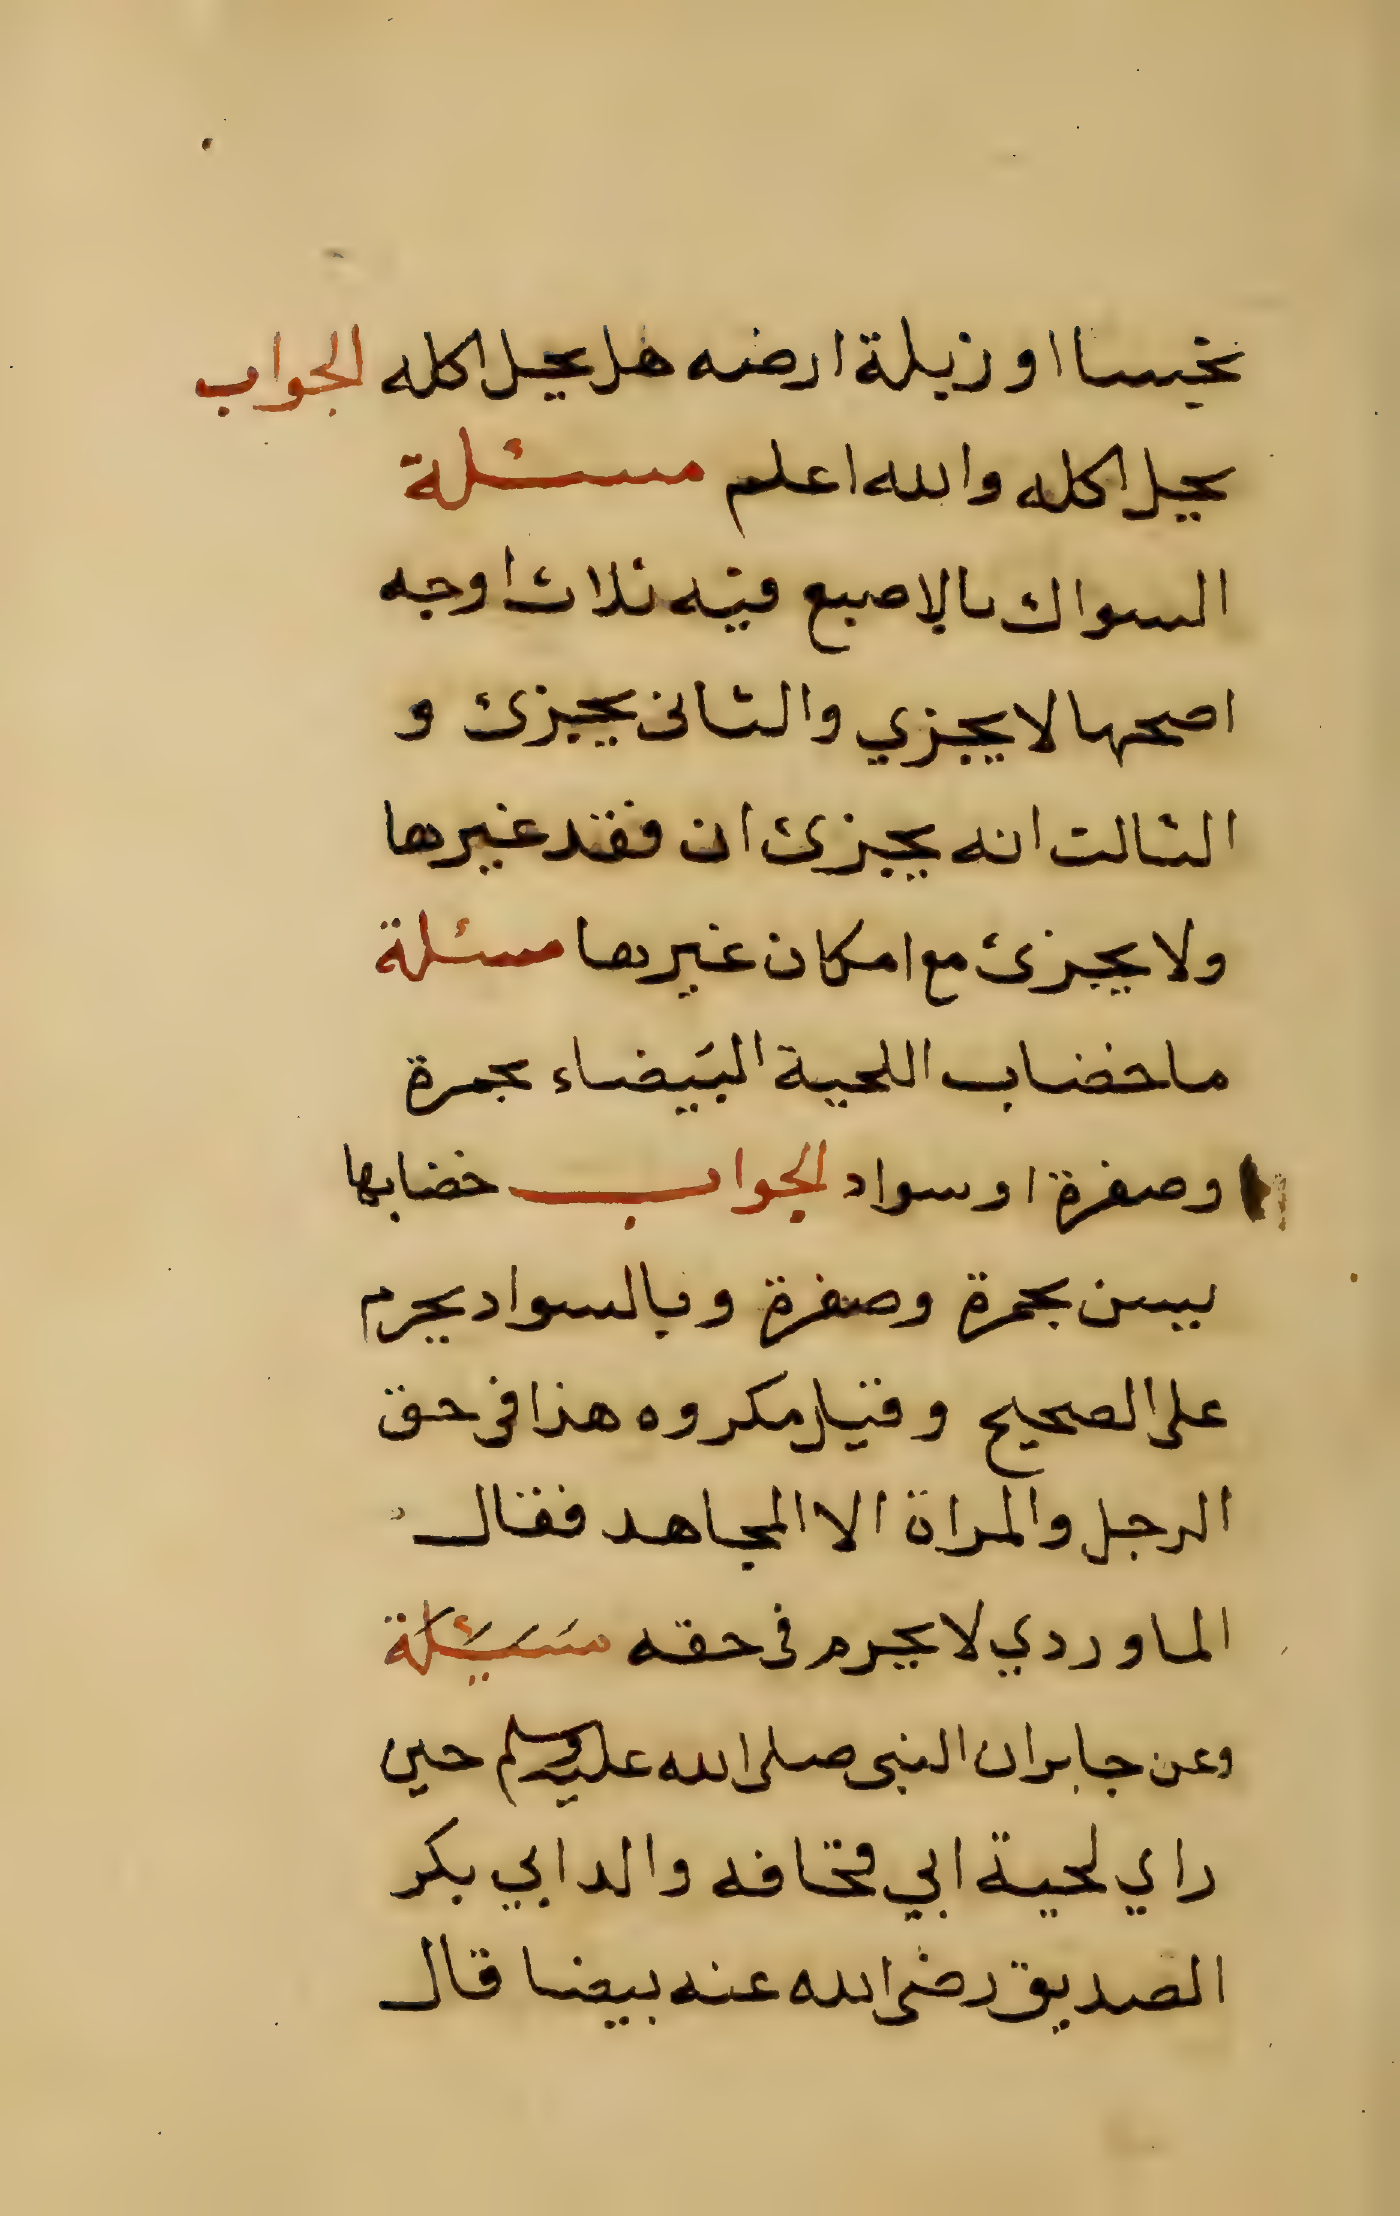 نجسا او زبلة ارضه هل يحل اكله الجواب
يحل اكله والله اعلم مسئلة
السواك بالاصبع فيه ثلاث اوجه
اصحها لا يجزي والثانى يجزئ و
الثالث انه يجزئ ان فقد غيرها
ولا يجزئ مع امكان غيرها مسئلة
ما خضاب اللحية البيضاء بحمرة
وصفرة او سواد الجواب خضابها
يسن بحمرة وصفرة وبالسواد يحرم
على الصحيح وقيل مكروه هذا فى حق
الرجل والمراة الا المجاهد فقال
الماوردي لا يحرم فى حقه مسئلة
وعن جابر ان النبى صلى الله عليه وسلم حين
راي لحية ابي قحافه والد ابي بكر
الصديق رضى الله عنه بيضا قال